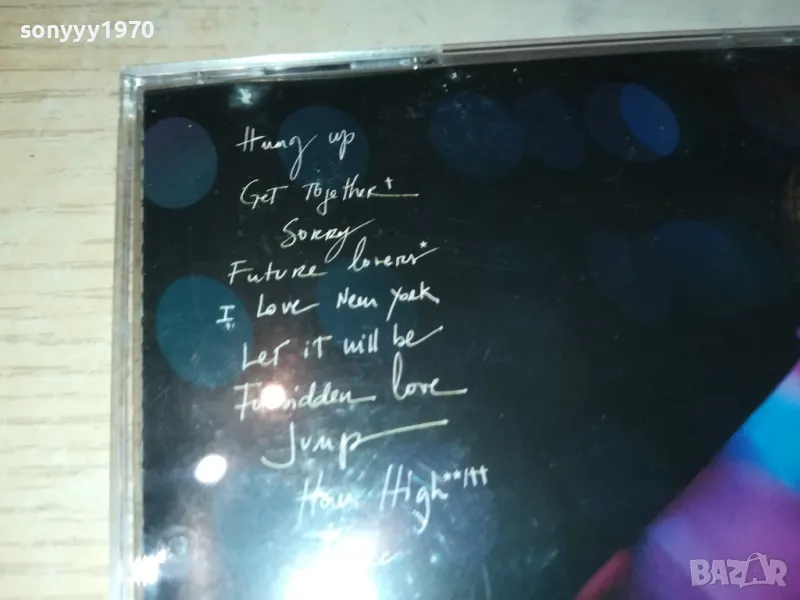 sonyyy1970
Hung up
Get Together+
Sorry
Future lovers*
I Love New York
Let it will be
Forbidden love
Jump
How High**/++
BAZAR